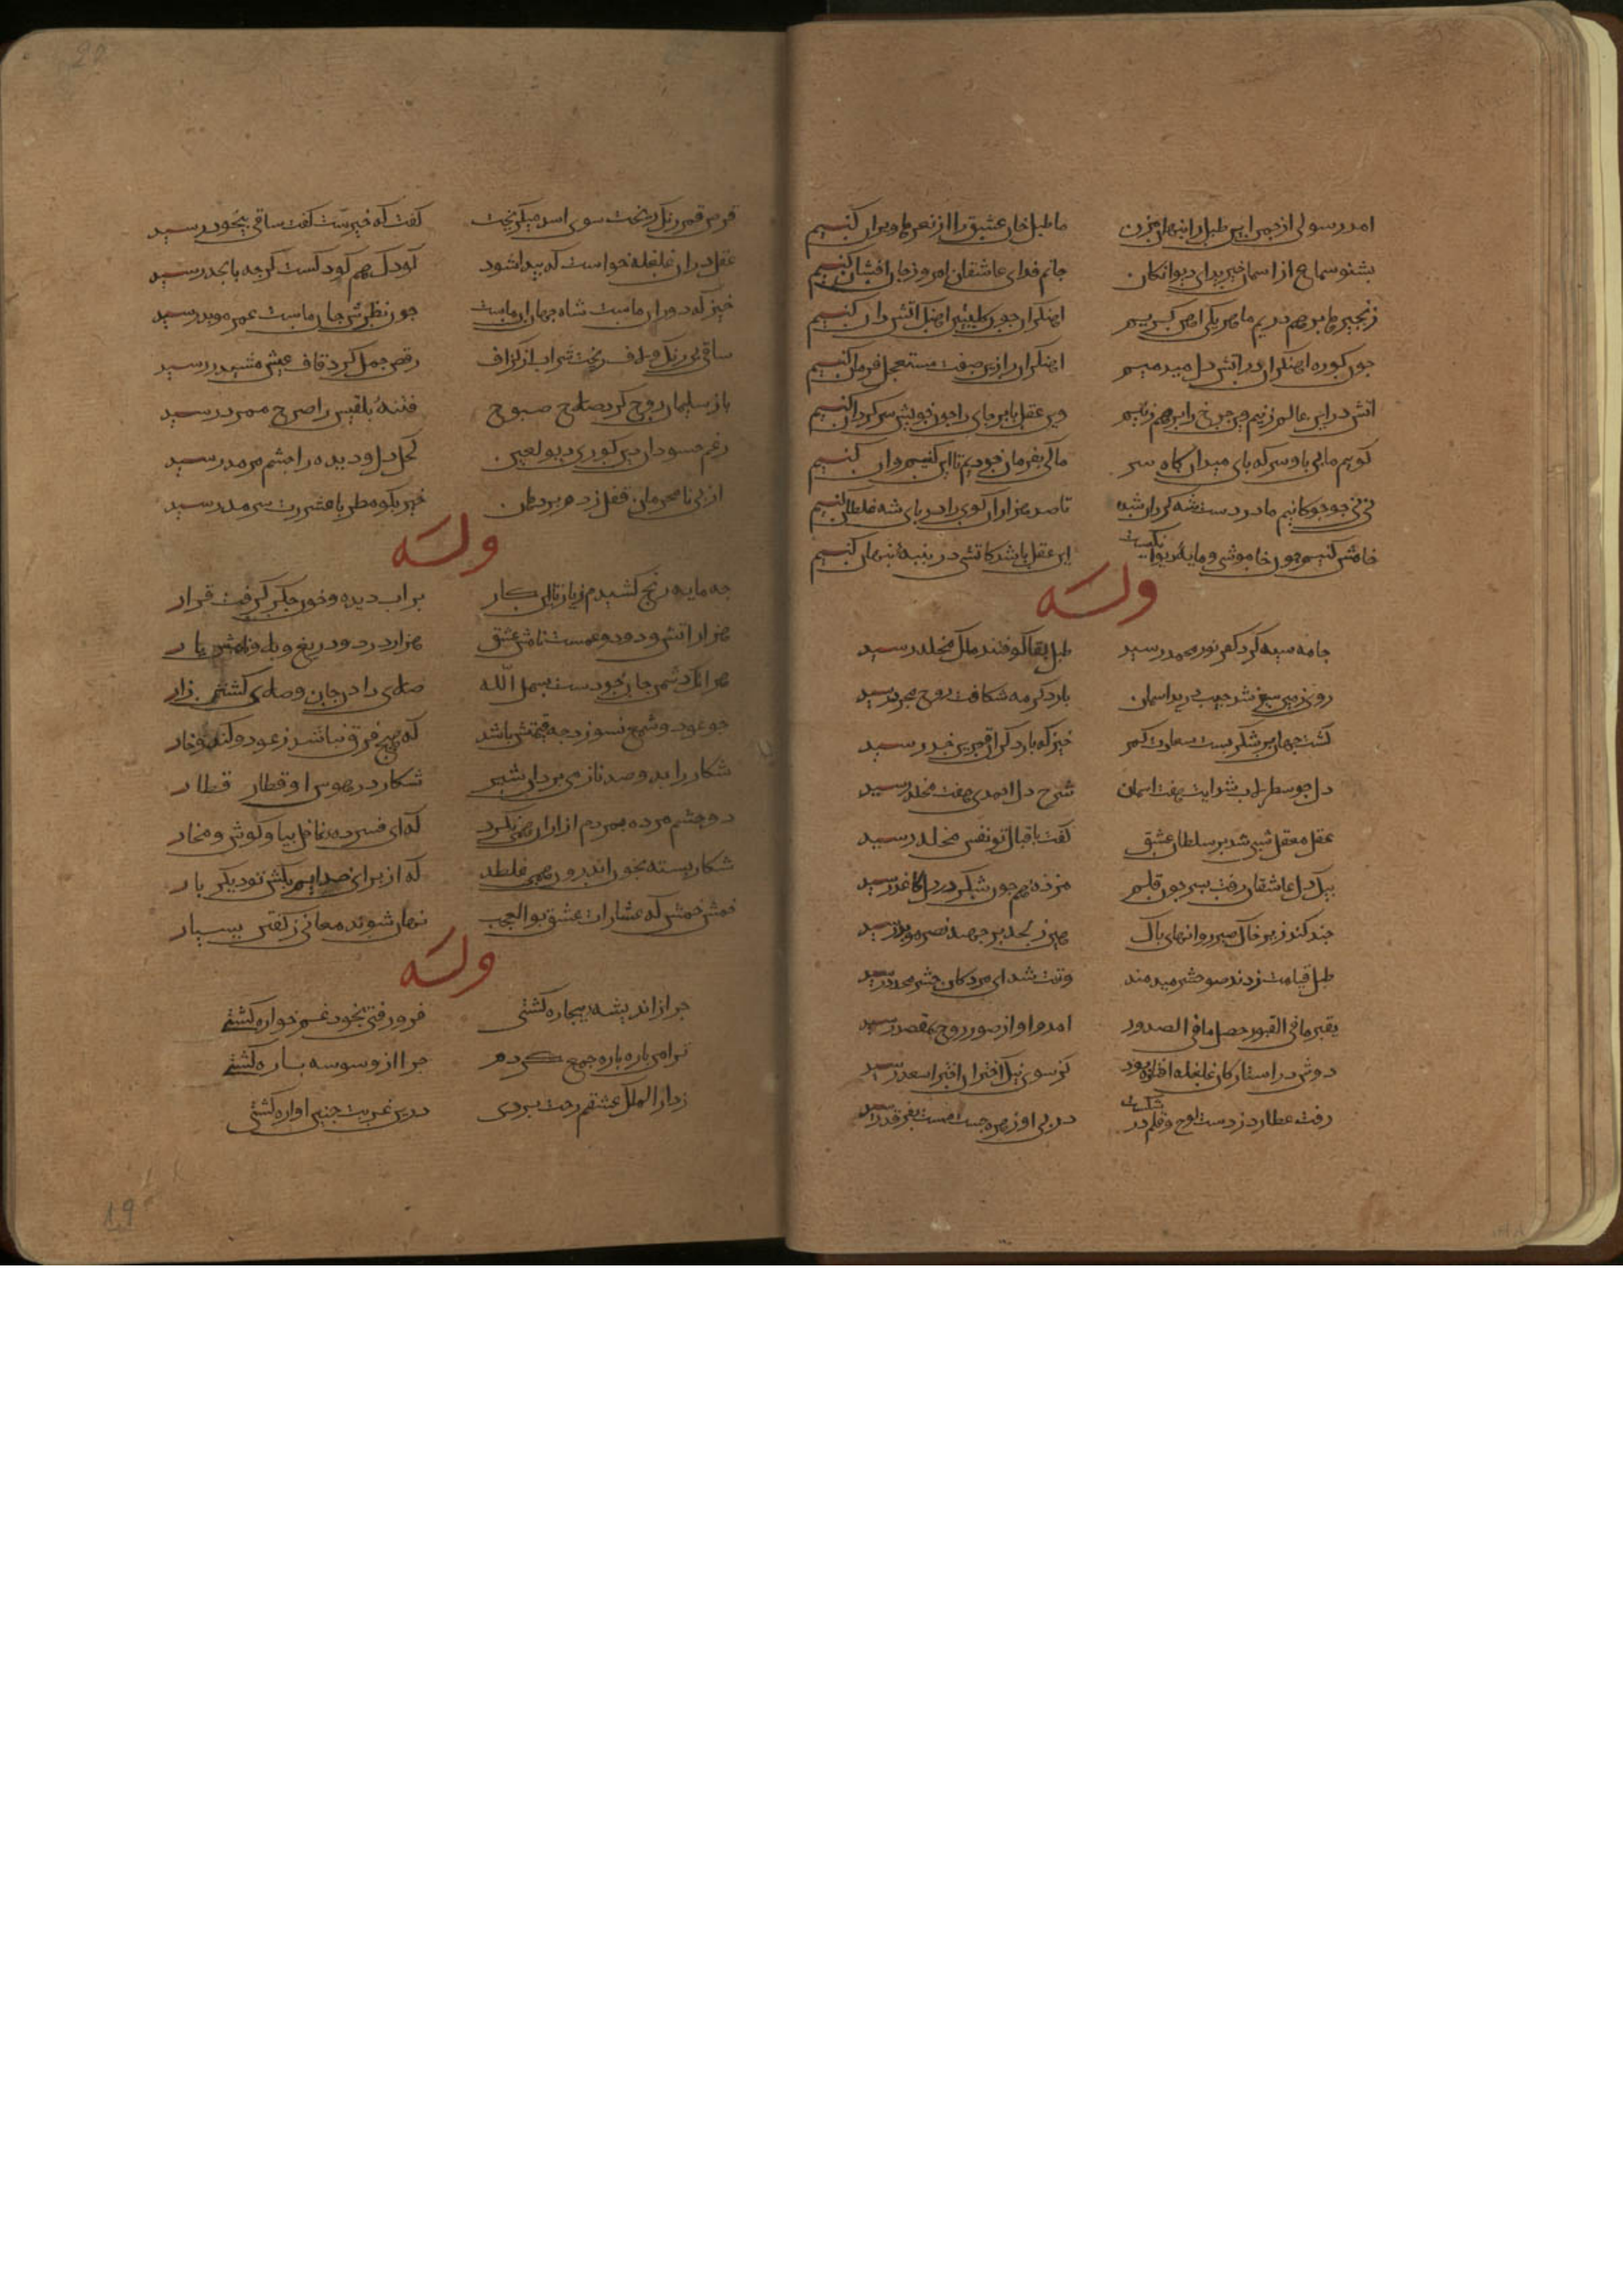 امد رسولی از جمن این طبل را بنهان مزن ما طبل خانه عشق را از نعرها ویران کنیم
بشنو سماع از اسمان خیزید ای دیوانکان جانم فدای عاشقان امروز جان افشان کنیم
زنجیرها بر هم دریم ما هر یکی اهنکریم اهنکران جون کلبتین اهنک اتش دان کنیم
جون کوره اهنکران در اتش دل میدمیم اهنکران را زین صفت مستعجل فرمان کنیم
اتش در این عالم زنیم وین جرخ را برهم زنیم وین عقل بابرجای را جون خویش سرکردان کنیم
کوییم ما بی با و سر که بای میدان کاه سر ما کی بفرمان خودیم تا این کنیم و ان کنیم
نی نی جو جوکانیم ما در دست شه کردان شده تا صد هزاران کوی را در بای شه غلطان کنیم
خامش کنیم جون خاموشی و مایه دیوانکیست این عقل باشد کاتشی در بنبه بنهان کنیم
وله
جامه سیه کرد کفر نور محمد رسید طبل بقا کوفتند ملک مخلد رسید
روی زمین سبز شد جیب درید اسمان بار دکر مه شکافت روح مجرد رسید
کشت جهان بر شکر بست سعادت کمر خیز که بار دکر ان قمرین خد رسید
دل جو سطرلاب شد ایت هفت اسمان شرح دل احمدی هفت مجلد رسید
عقل معقل شبی شد بر سلطان عشق کفت باقبال تو نفس مخلد رسید
بیک دل عاشقان رفت بسر جون قلم مزده هم جون شکر در دل کاغذ رسید
جند کند زیر خاک صبر روانهای باک هین ز لحد برجهید نصر موید رسید
طبل قیامت زدند صور حشر میدمند وقت شد ای مردکان حشر مجدد رسید
بعثر ما فی القبور حصل ما فی الصدور امد اواز صور روح بمقصد رسید
دوش در استارکان غلغله افتاده بود کز سوی نیک اختران اختر اسعد رسید
رفت عطارد ز دست لوح و قلم در شکست در بی او زهره جست مست بفرقد رسید
قرص قمر رنک ریخت سوی اسد میکریخت کفت که خیرست کفت ساقی بیخود رسید
عقل در ان غلغله خواست که بیدا شود کودک هم کودکست کرجه بابجد رسید
خیز که دوران ماست شاه جهان ان ماست جون نظرش جان ماست عمر موبد رسید
ساقی بی رنک و لاف ریخت شراب از کزاف رقص جمل کرد قاف عیش مشید رسید
باز سلیمان روح کرد صلاح صبوح فتنه بلقیس را صرح ممرد رسید
رغم حسودان دین کوری دیو لعین کحل دل و دیده در جشم مرمد رسید
از بی نامحرمان قفل زدم بر دهان خیز بکو مطربا عشرت سرمد رسید
وله
جه مایه رنج کشیدم ز یار تا این کار بر اب دیده و خون جکر کرفت قرار
هزار اتش و دود و غمست نامش عشق هزار درد و دریغ و بلا و نامش یار
هر انک دشمن جان خودست بسم الله صلای دادن جان و صلای کشتن زار
جو عود و شمع نسوزد جه قیمتش باشد که هیج فرق نباشد ز عود و کنده خار
شکار را بدو صد ناز می برد این شیر شکار در هوس او قطار قطار
دو جشم مرده بمردم از ان همی نکرد که ای فسرده غافل بیا و کوش و مخار
شکار بسته بخون اندرون همی غلطد که از برای خدایم بکش تو دیکر بار
خمش خمش که عشارات عشق بوالعجب نهان شوند معانی ز کفتن بسیار
وله
جرا ز اندیشه بیجاره کشتی فرو رفتی بخود غمخواره کشتی
ترا من باره باره جمع کردم جرا از وسوسه باره کشتی
ز دار الملک عشقم رخت بردی درین غربت جنین اواره کشتی